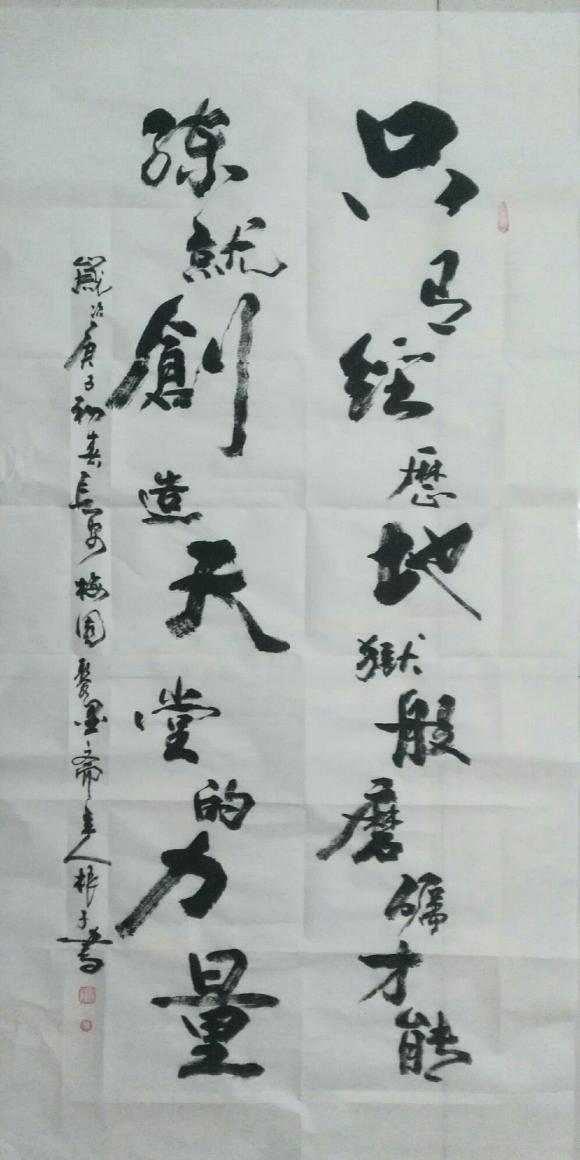 只有经歷地獄般磨礪才能
练就創造天堂的力量
歲次庚子初春長安梅園醫墨斋主人根子書